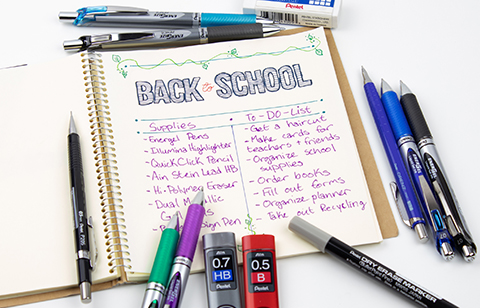 Pentel
BACK to SCHOOL
Supplies
- Energel Pens
- Illumina Highlighter
- QuickClick Pencil
- Ain Stein Lead HB
- Hi-Polymer Eraser
- Dual Metallic
Pens
To-DO-List
- Get a haircut
- Make cards for
teachers + friends
- Organize school
supplies
- Order books
- Fill out forms
- Organize planner
- Take out Recycling
Ain
0.7
HB
Pentel
Ain
0.5
B
Pentel
Pentel DRY ERASE MARKER